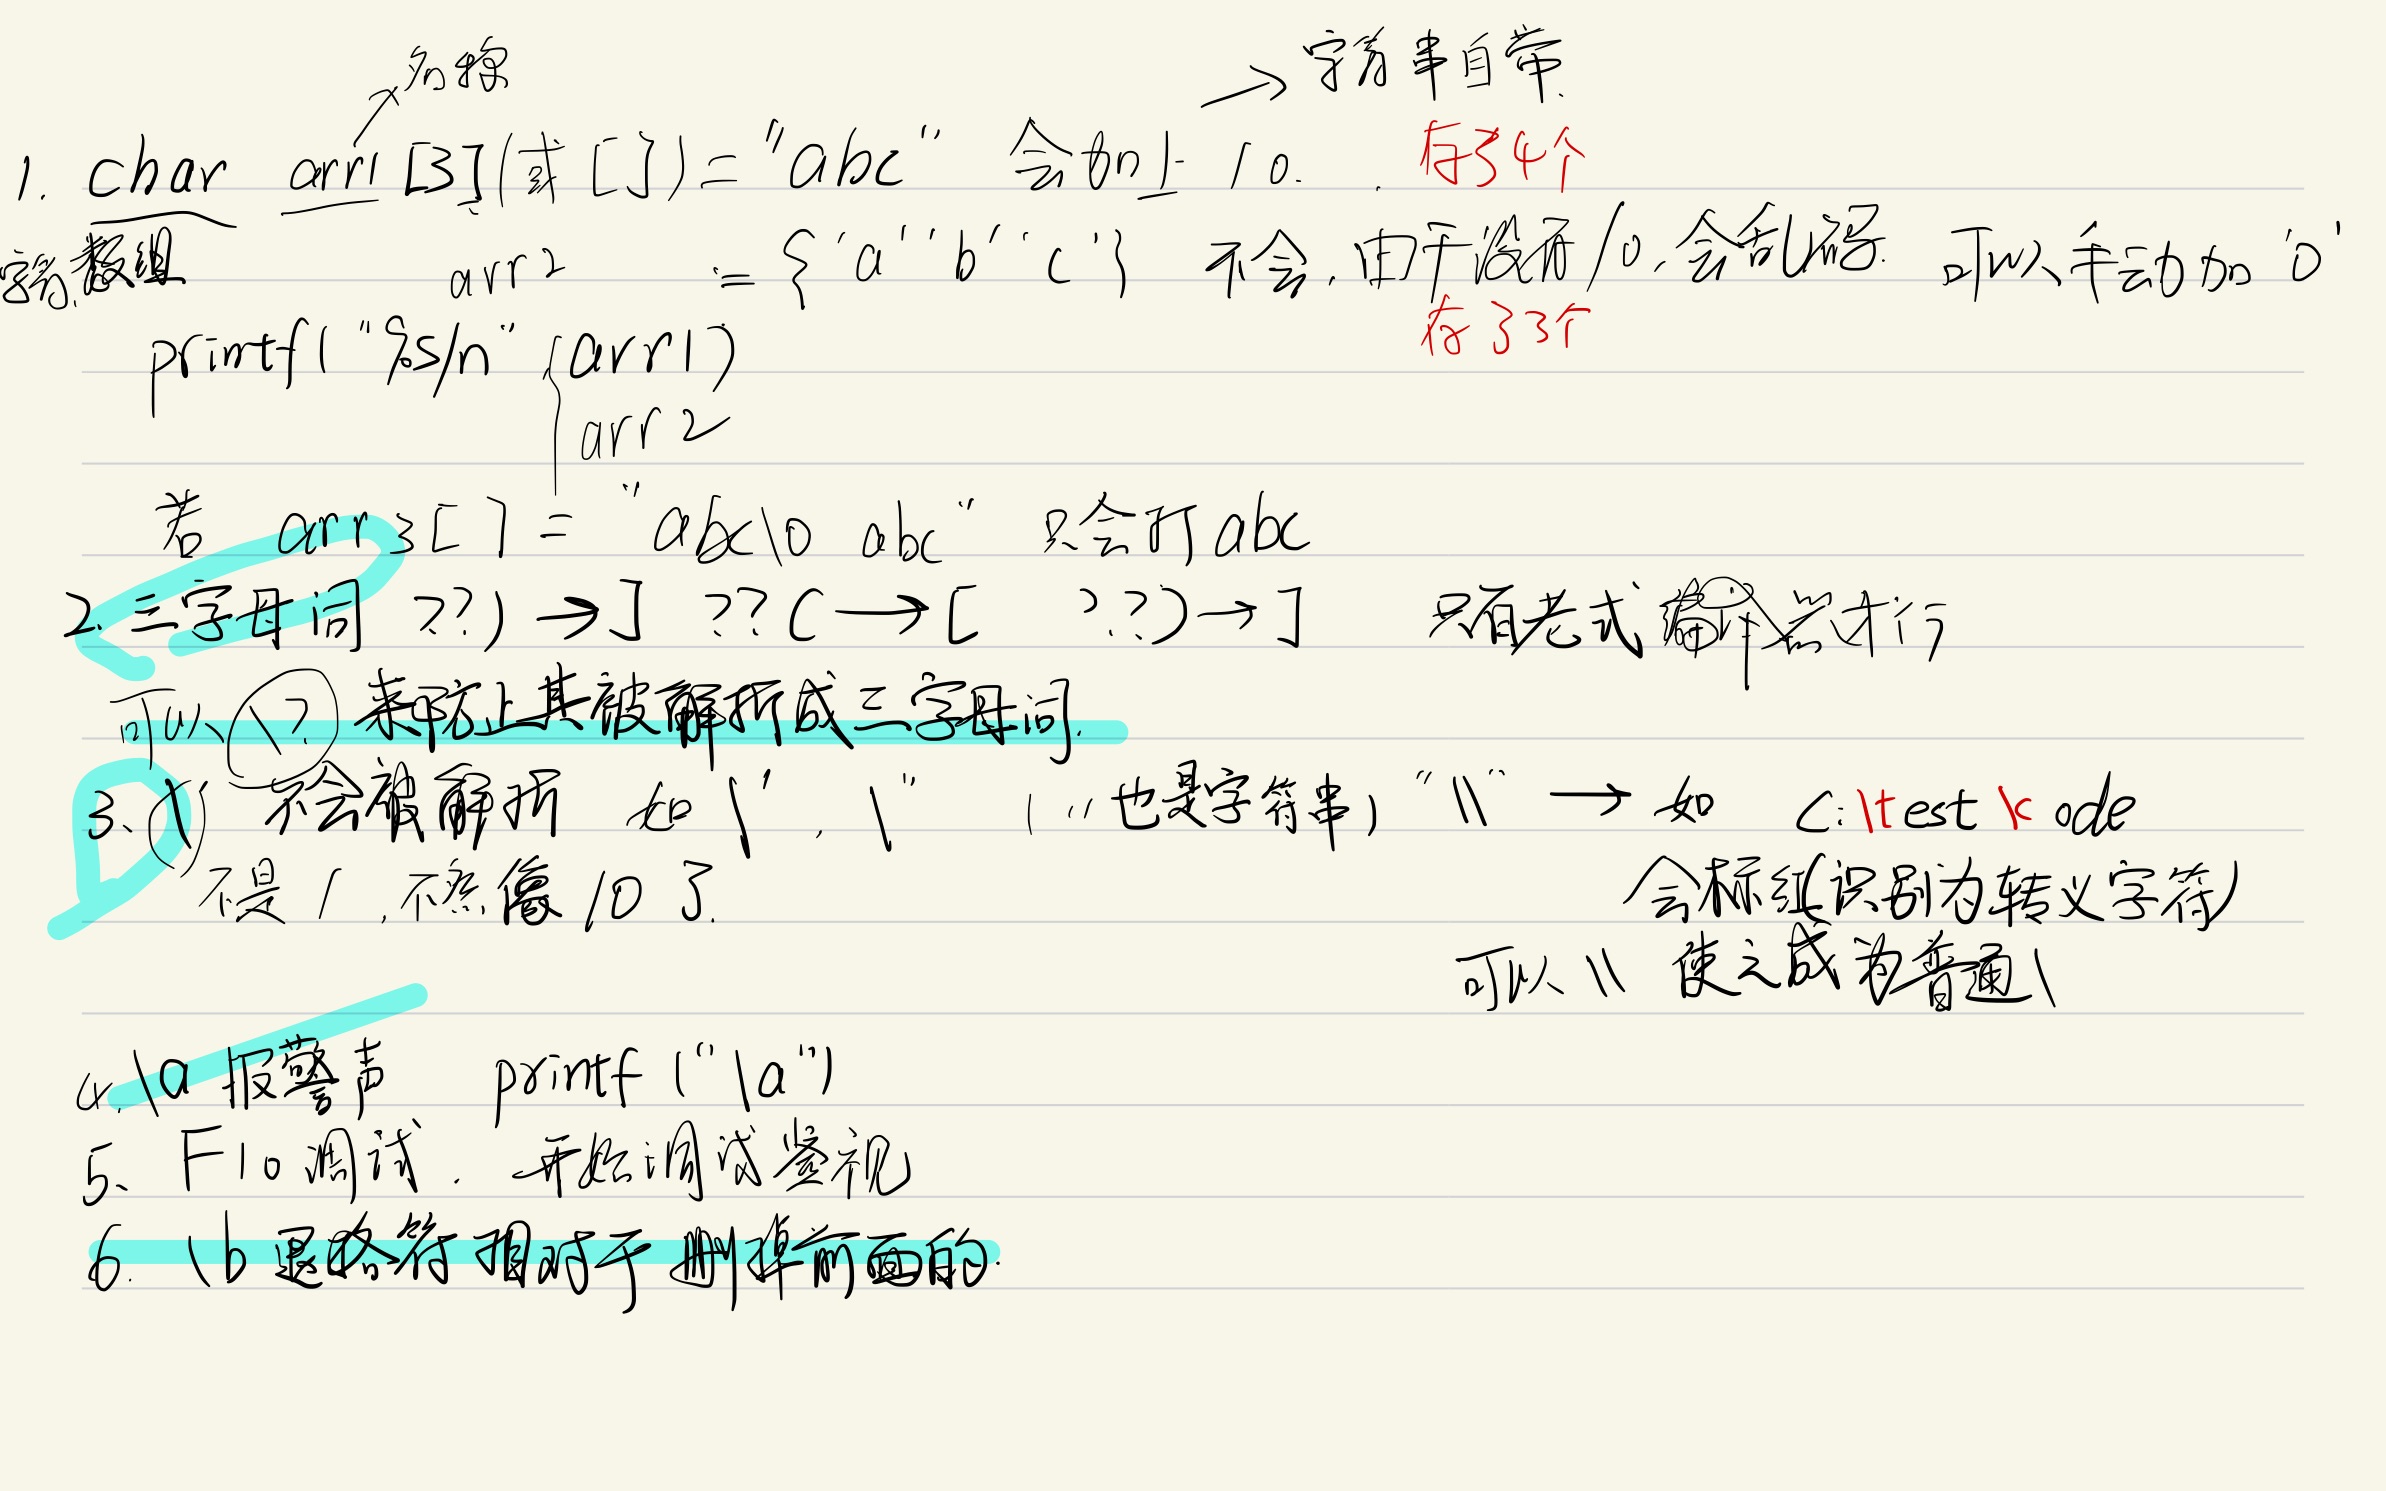 名称
字符串自带.
1. char arr1 [3](或 []) = "abc" 会加上 /0. 存了4个
字符数组 arr2 = {'a' 'b' 'c'} 不会,由于没有/0,会乱码. 可以手动加 '0'
存了3个
printf("%s/n" , arr1)
arr2
若 arr3[] = "abc\0 abc" 只会打 abc
2. 三字母词 ??) → ] ??( → [ ??) → ] 只有老式编译器才行
可以 \? 来防止其被解析成三字母词.
3、\ 不会被解析 如 \' , \" ( " 也是字符串) "\\" → 如 C:\test\code
不是 / ,不然像 /0 了.
会标红(识别为转义字符)
可以 \\ 使之成为普通 \
4. \a 报警声 printf ("\a")
5、F10调试. 开始调试监视
6. \b 退格符 相对于 删掉前面的.